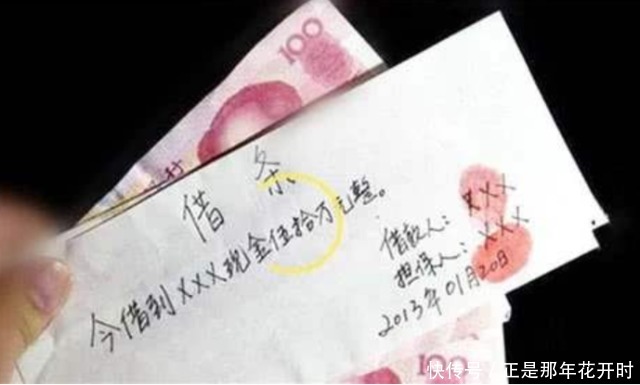 100
借条
今借到XXX现金伍拾万元整。
借款人：XXX
担保人：XXX
2013年01月20日
100
快传号/正是那年花开时